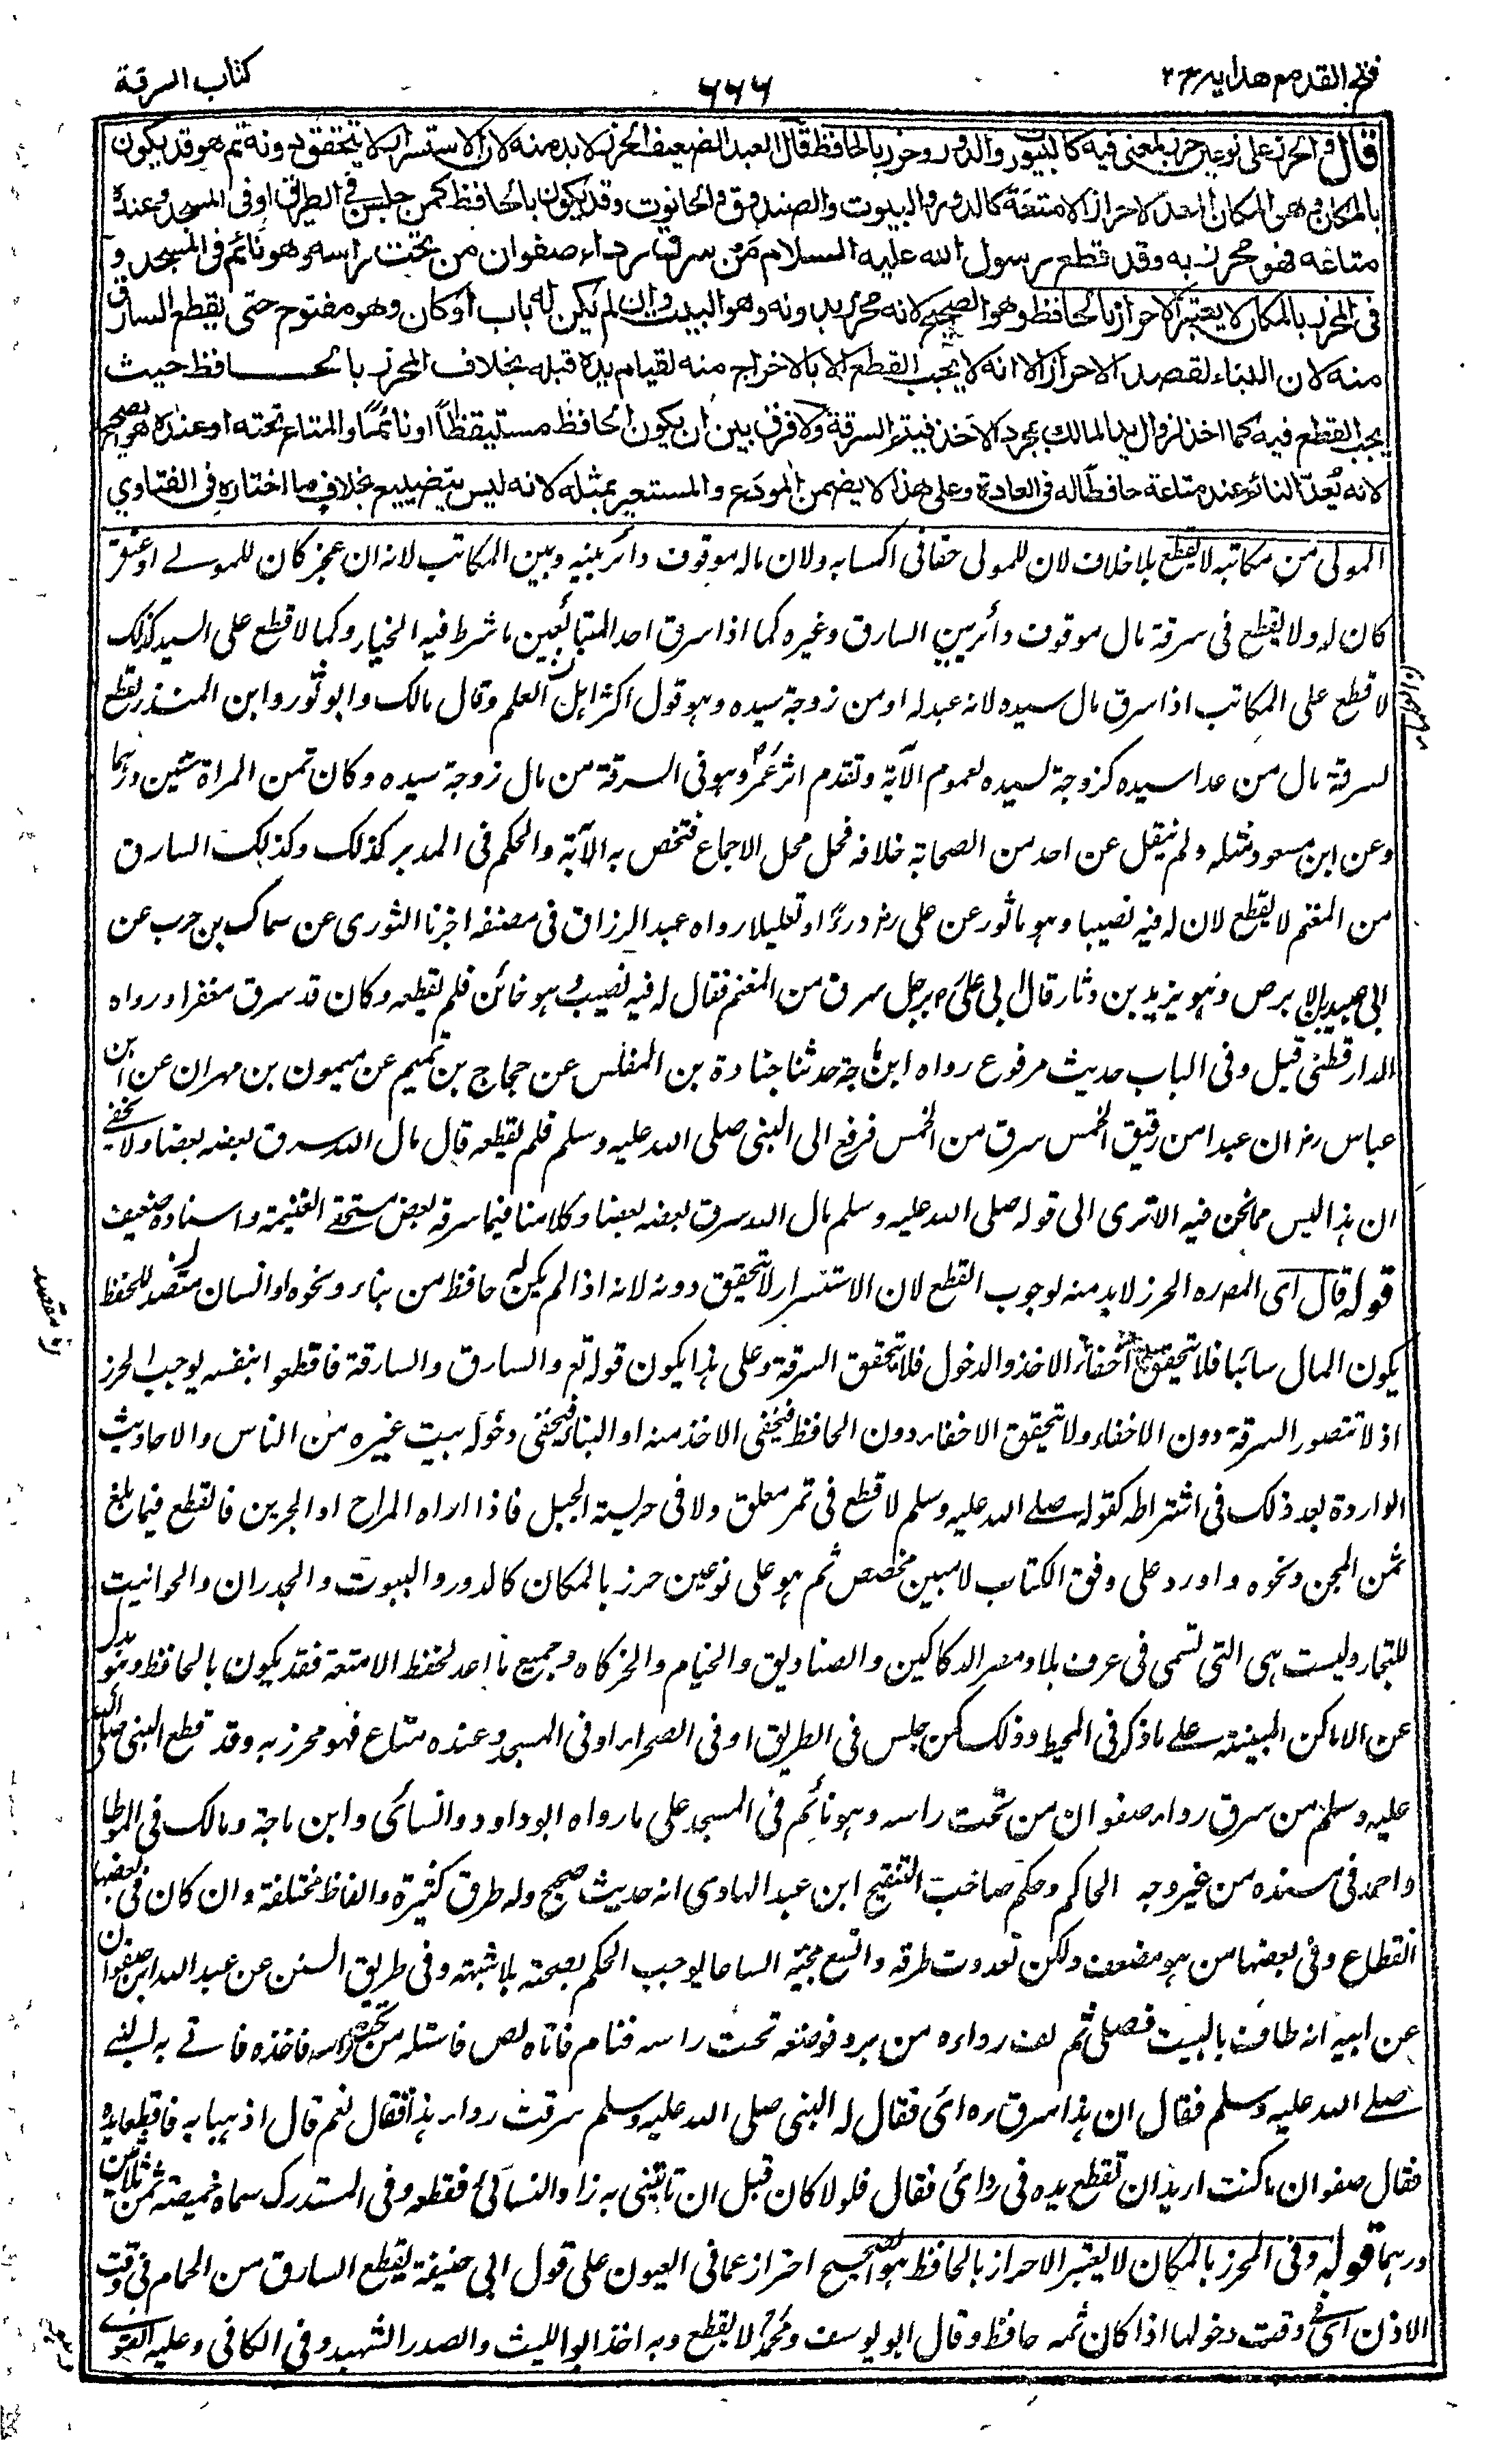 فتح القدير مع هدايه ج ٢
٧٦٦
كتاب السرقة
قال والحرز على نوعين حرز لمعنى فيه كالبيوت والدور وحرز بالحافظ قال العبد الضعيف الحرز لا بد منه لان الاستسرار لا يتحقق دونه ثم هو قد يكون
بالمكان وهو المكان المعد لاحراز الامتعة كالدور والبيوت والصندوق والحانوت وقد يكون بالحافظ كمن جلس فى الطريق او فى المسجد وعنده
متاعه فهو محرز به وقد قطع رسول الله عليه السلام من سرق رداء صفوان من تحت راسه وهو نائم فى المسجد و
فى المحرز بالمكان لا يعتبر الاحراز بالحافظ وهو الصحيح لانه محرز بدونه وهو البيت وان لم يكن له باب او كان وهو مفتوح حتى يقطع السارق
منه لان البناء لقصد الاحراز الا انه لا يجب القطع الا بالاخراج منه لقيام يده قبله بخلاف المحرز بالحافظ حيث
يجب القطع فيه كما اخذ لزوال يد المالك بمجرد الاخذ فيتم السرقة ولا فرق بين ان يكون الحافظ مستيقظا او نائما والمتاع تحته او عنده هو الصحيح
لانه يُعدّ النائم عند متاعة حافظا له فى العادة وعلى هذا لا يضمن المودَع والمستعير بمثله لانه ليس بتضييع بخلاف ما اختاره فى الفتاوي
المولى من مكاتبه لا يقطع بلا خلاف لان للمولى حقا فى اكسابه ولان ماله موقوف دائر بينه وبين المكاتب لانه ان عجز كان للمولے او عتق
كان له ولا يقطع فى سرقة مال موقوف دائر بين السارق وغيره كما اذا سرق احد المتبائعين ما شرط فيه الخيار وكما لا قطع على السيد كذلك
لا قطع على المكاتب اذا سرق مال سيده لانه عبد له او من زوجة سيده وهو قول اكثر اهل العلم وقال مالك وابو ثور وابن المنذر يقطع
لسرقة مال من عدا سيده كزوجة لسيده لعموم الآية وتقدم اثر عمر وهو فى السرقة من مال زوجة سيده وكان ثمن المراة ستين درهما
وعن ابن مسعود مثله ولم ينقل عن احد من الصحابة خلافه فحل محل الاجماع فتخص به الآية والحكم فى المدبر كذلك وكذلك السارق
من المغنم لا يقطع لان له فيه نصيبا وهو ماثور عن على رض درءًا وتعليلا رواه عبد الرزاق فى مصنفه اخبرنا الثورى عن سماك بن حرب عن
ابى عبيد بن الابرص وهو يزيد بن دثار قال اتى علىّ برجل سرق من المغنم فقال له فيه نصيب وهو خائن فلم يقطعه وكان قد سرق مغفرا ورواه
الدارقطنى قبل وفى الباب حديث مرفوع رواه ابن ماجة حدثنا جنادة بن المفلس عن حجاج بن تميم عن ميمون بن مهران عن ابن
عباس رض ان عبدا من رقيق الخمس سرق من الخمس فرفع الى النبى صلى الله عليه وسلم فلم يقطعه قال مال الله سرق بعضه بعضا ولا يخفے
ان هذا ليس مما نحن فيه الا ترى الى قوله صلى الله عليه وسلم مال الله سرق بعضه بعضا وكلامنا فيما سرقه بعض مستحقے الغنيمة واسناده ضعيف
قوله قال اى المصره الحرز لا بد منه لوجوب القطع لان الاستسرار لا يتحقق دونه لانه اذا لم يكن له حافظ من بناء ونحوه او انسان متصد للحفظ
يكون المال سائبا فلا يتحقق اخفاء الاخذ والدخول فلا يتحقق السرقة وعلى هذا يكون قوله تع والسارق والسارقة فاقطعوا بنفسه يوجب الحرز
اذ لا تتصور السرقة دون الاخفاء ولا تحقق الاخفاء دون الحافظ فيخفى الاخذ منه او البناء فيخفى دخوله بيت غيره من الناس والاحاديث
الواردة بعد ذلك فى اشتراطه كقوله صلے الله عليه وسلم لا قطع فى ثمر معلق ولا فى حريسة الجبل فاذا اواه المراح او الجرين فالقطع فيما بلغ
ثمن المجن ونحوه وارد على وفق الكتاب لا مبين مخصص ثم هو على نوعين حرز بالمكان كالدور والبيوت والجدران والحوانيت
للتجار وليست هى التى تسمى فى عرف بلاد مصر الدكاكين والصناديق والخيام والخركاه وجميع ما اعد لحفظ الامتعة فقد يكون بالحافظ وهو بدل
عن الاماكن المبينة علے ما ذكر فى المحيط وذلك كمن جلس فى الطريق او فى الصحراء او فى المسجد وعنده متاع فهو محرز به وقد قطع النبى صلى الله
عليه وسلم من سرق رداء صفوان من تحت راسه وهو نائم فى المسجد على ما رواه ابو داود والنسائى وابن ماجة ومالك فى الموطا
واحمد فى مسنده من غير وجه الحاكم وحكم صاحب التنقيح ابن عبد الهادى انه حديث صحيح وله طرق كثيرة والفاظ مختلفة وان كان فى بعضها
انقطاع وفى بعضها من هو مضعف ولكن تعددت طرقه واتسع مجيئه اتساعا يوجب الحكم بصحته بلا شبهة وفى طريق السنن عن عبد الله ابن صفوان
عن ابيه انه طاف بالبيت فصلى ثم لف رداءه من برد فوضعه تحت راسه فنام فاتاه لص فاستله من تحت راسه فاخذه فاتے به النبے
صلے الله عليه وسلم فقال ان هذا سرق رداى فقال له النبى صلى الله عليه وسلم سرقت رداء هذا فقال نعم قال اذهبا به فاقطعا يده
فقال صفوان ما كنت اريد ان تقطع يده فى ردائى فقال فلولا كان قبل ان تاتينى به زاد النسائى فقطعه وفى المستدرك سماه خميصة ثمن ثلاثين
درهما قوله وفى المحرز بالمكان لا يعتبر الاحراز بالحافظ هو الصحيح احتراز عما فى العيون على قول ابى حنيفة يقطع السارق من الحمام فى وقت
الاذن اى وقت دخولها اذا كان ثمه حافظ وقال ابو يوسف ومحمد لا يقطع وبه اخذ ابو الليث والصدر الشهيد وفى الكافى وعليه الفتوے